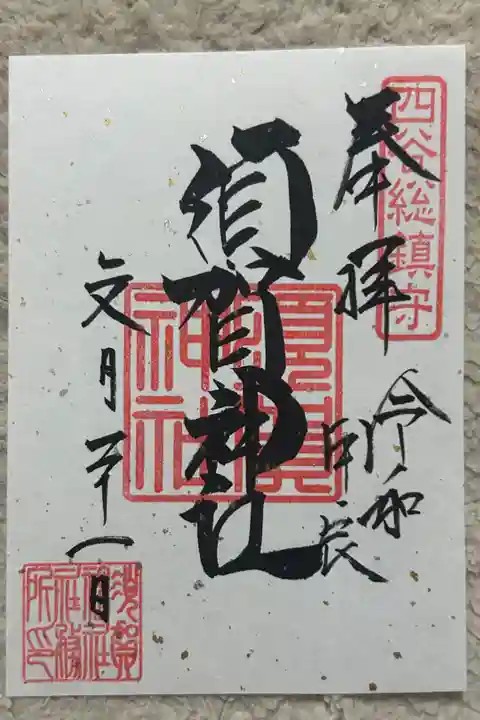 四谷総鎮守
奉拝
令和
甲辰
須賀神社
須賀
神社
文月二十一日
須賀
神社
社務
所印